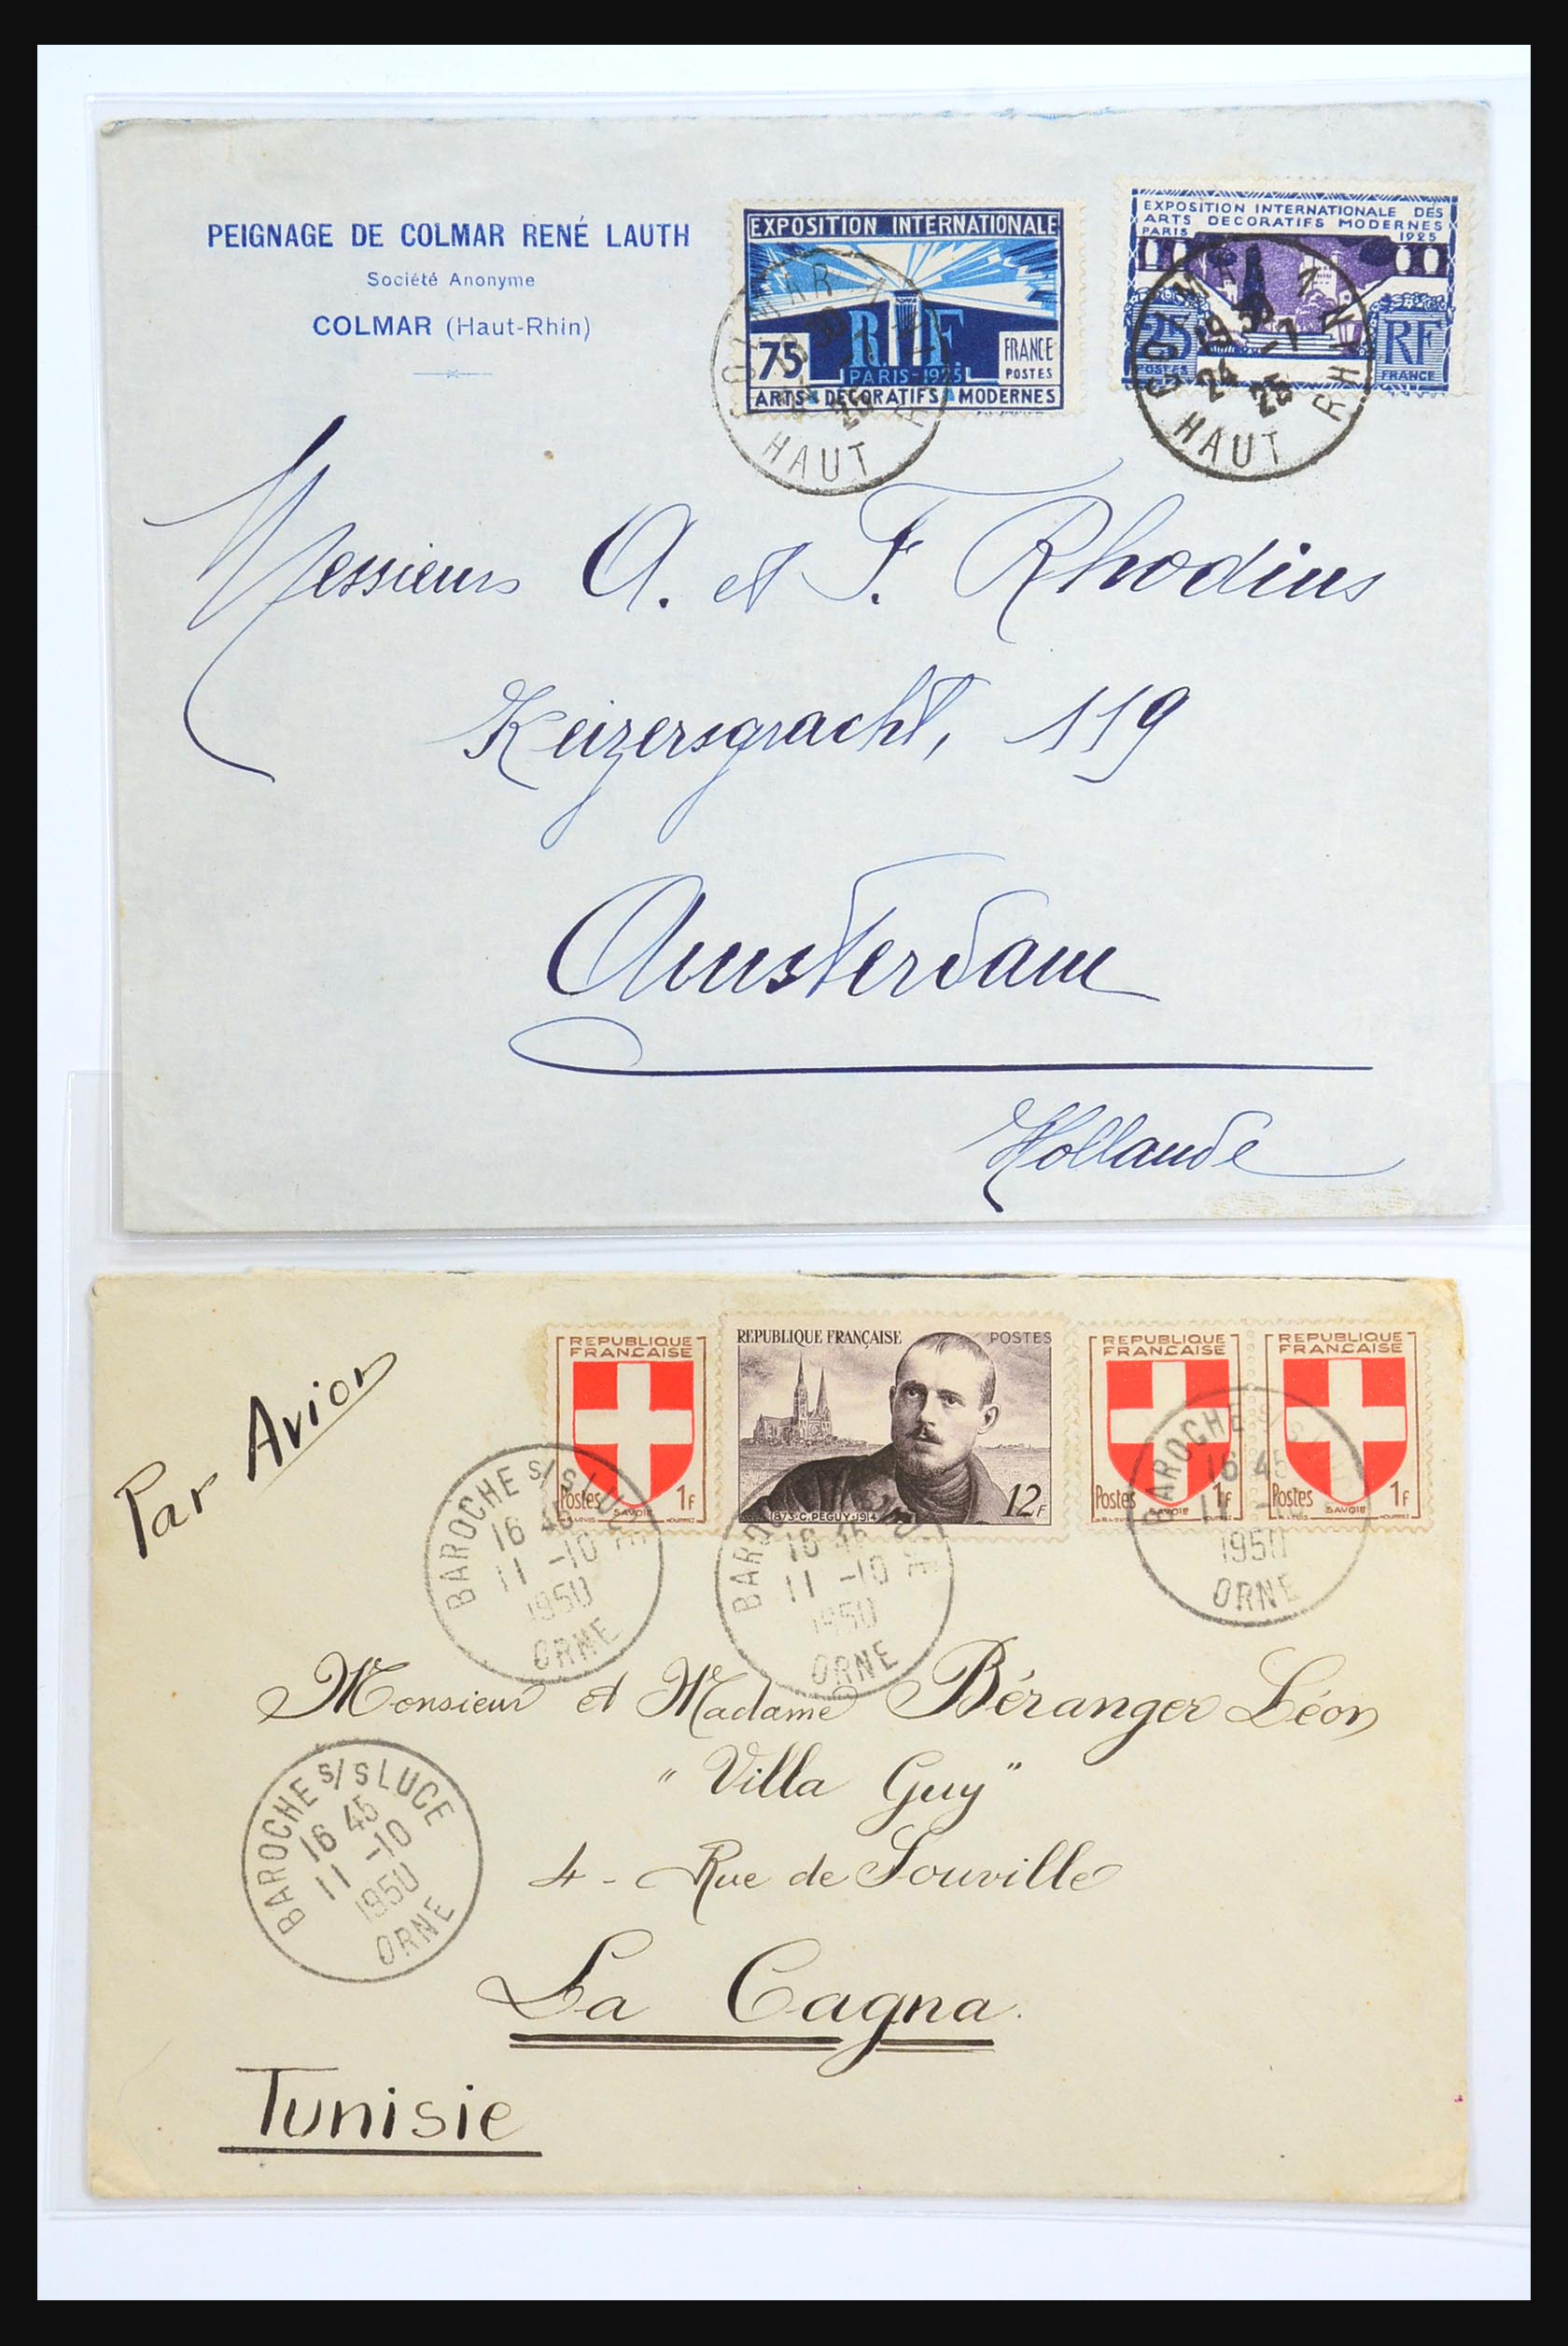 PEIGNAGE DE COLMAR RENÉ LAUTH
Société Anonyme
COLMAR (Haut-Rhin)
EXPOSITION INTERNATIONALE
75
R.F.
PARIS-1925
FRANCE
POSTES
ARTS DÉCORATIFS MODERNES
EXPOSITION INTERNATIONALE DES
ARTS DECORATIFS MODERNES
PARIS 1925
25
POSTES
RF
FRANCE
COLMAR
HAUT RHIN
COLMAR
19 30
24 -7
25
HAUT RHIN
Messieurs A. et F. Rhodius
Keizersgracht, 119
Amsterdam
Hollande
Par Avion
REPUBLIQUE
FRANCAISE
Postes 1F
SAVOIE
REPUBLIQUE FRANÇAISE POSTES
12F
1873-C.PEGUY-1914
REPUBLIQUE
FRANCAISE
Postes 1F
SAVOIE
REPUBLIQUE
FRANCAISE
Postes 1F
SAVOIE
BAROCHE S/S LUCE
16 45
11 -10
1950
ORNE
16 45
11 -10
1950
ORNE
BAROCHE
16 45
1950
ORNE
Monsieur et Madame Béranger Léon
"Villa Guy"
4 - Rue de Souville
BAROCHE S/S LUCE
16 45
11 -10
1950
ORNE
La Cagna.
Tunisie